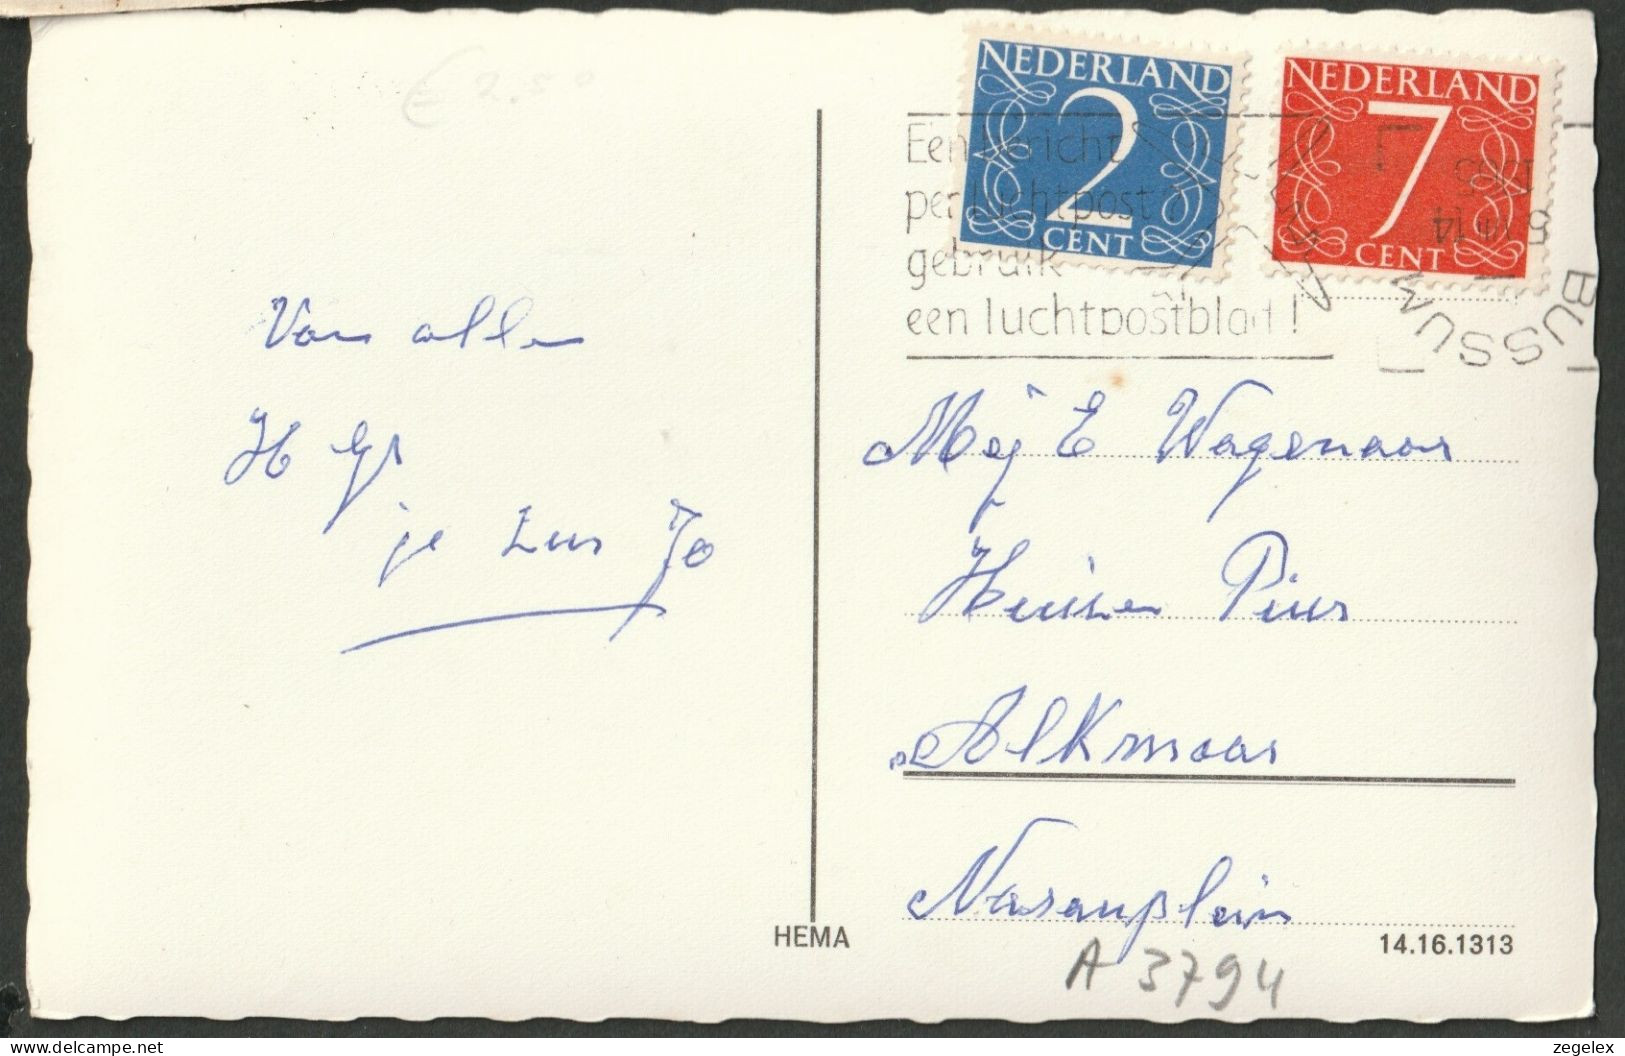 € 2.50
NEDERLAND
2
CENT
NEDERLAND
7
CENT
Een bericht
per luchtpost
gebruik
een luchtpostblad!
1965
BUSSUM
Van allen
H Gr
je zus Jo
Mej E Wagenaar
Huize Pius
Alkmaar
Nassauplein
HEMA
14.16.1313
A 3794
zegelex